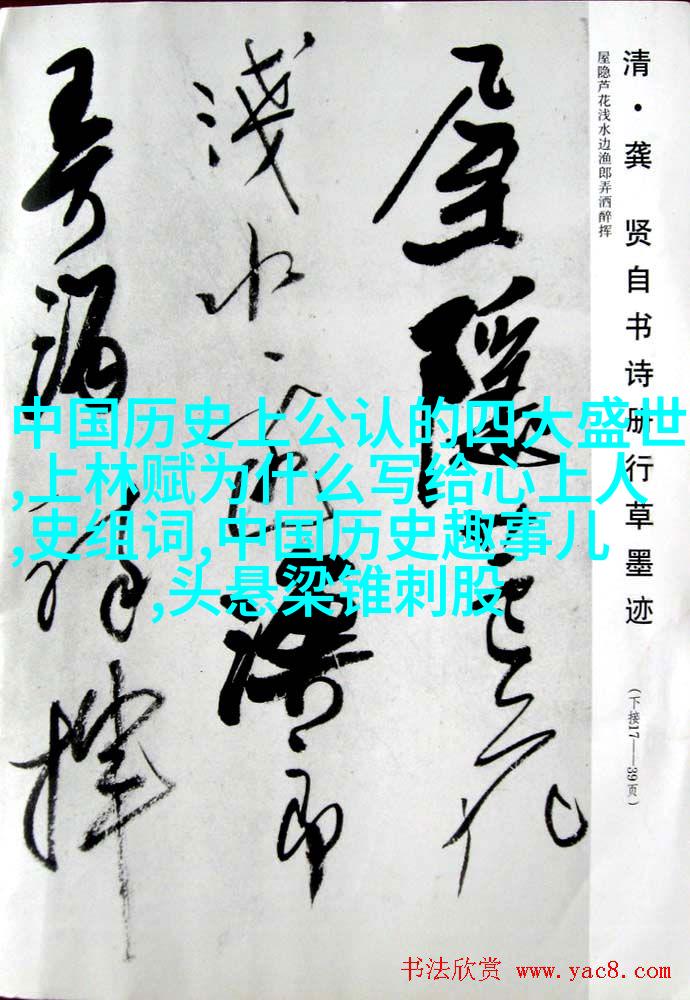 清·龚 贤自书诗册行草墨迹
（下接17——39页）
屋隐芦花浅水边渔郎弄洒醉挥
屋隱芦花
淺水邊漁郎
弄酒醉揮
中国历史上公认的四大盛世
,上林赋为什么写给心上人
,史组词,中国历史趣事儿
,头悬梁锥刺股
书法欣赏 www.yac8.com